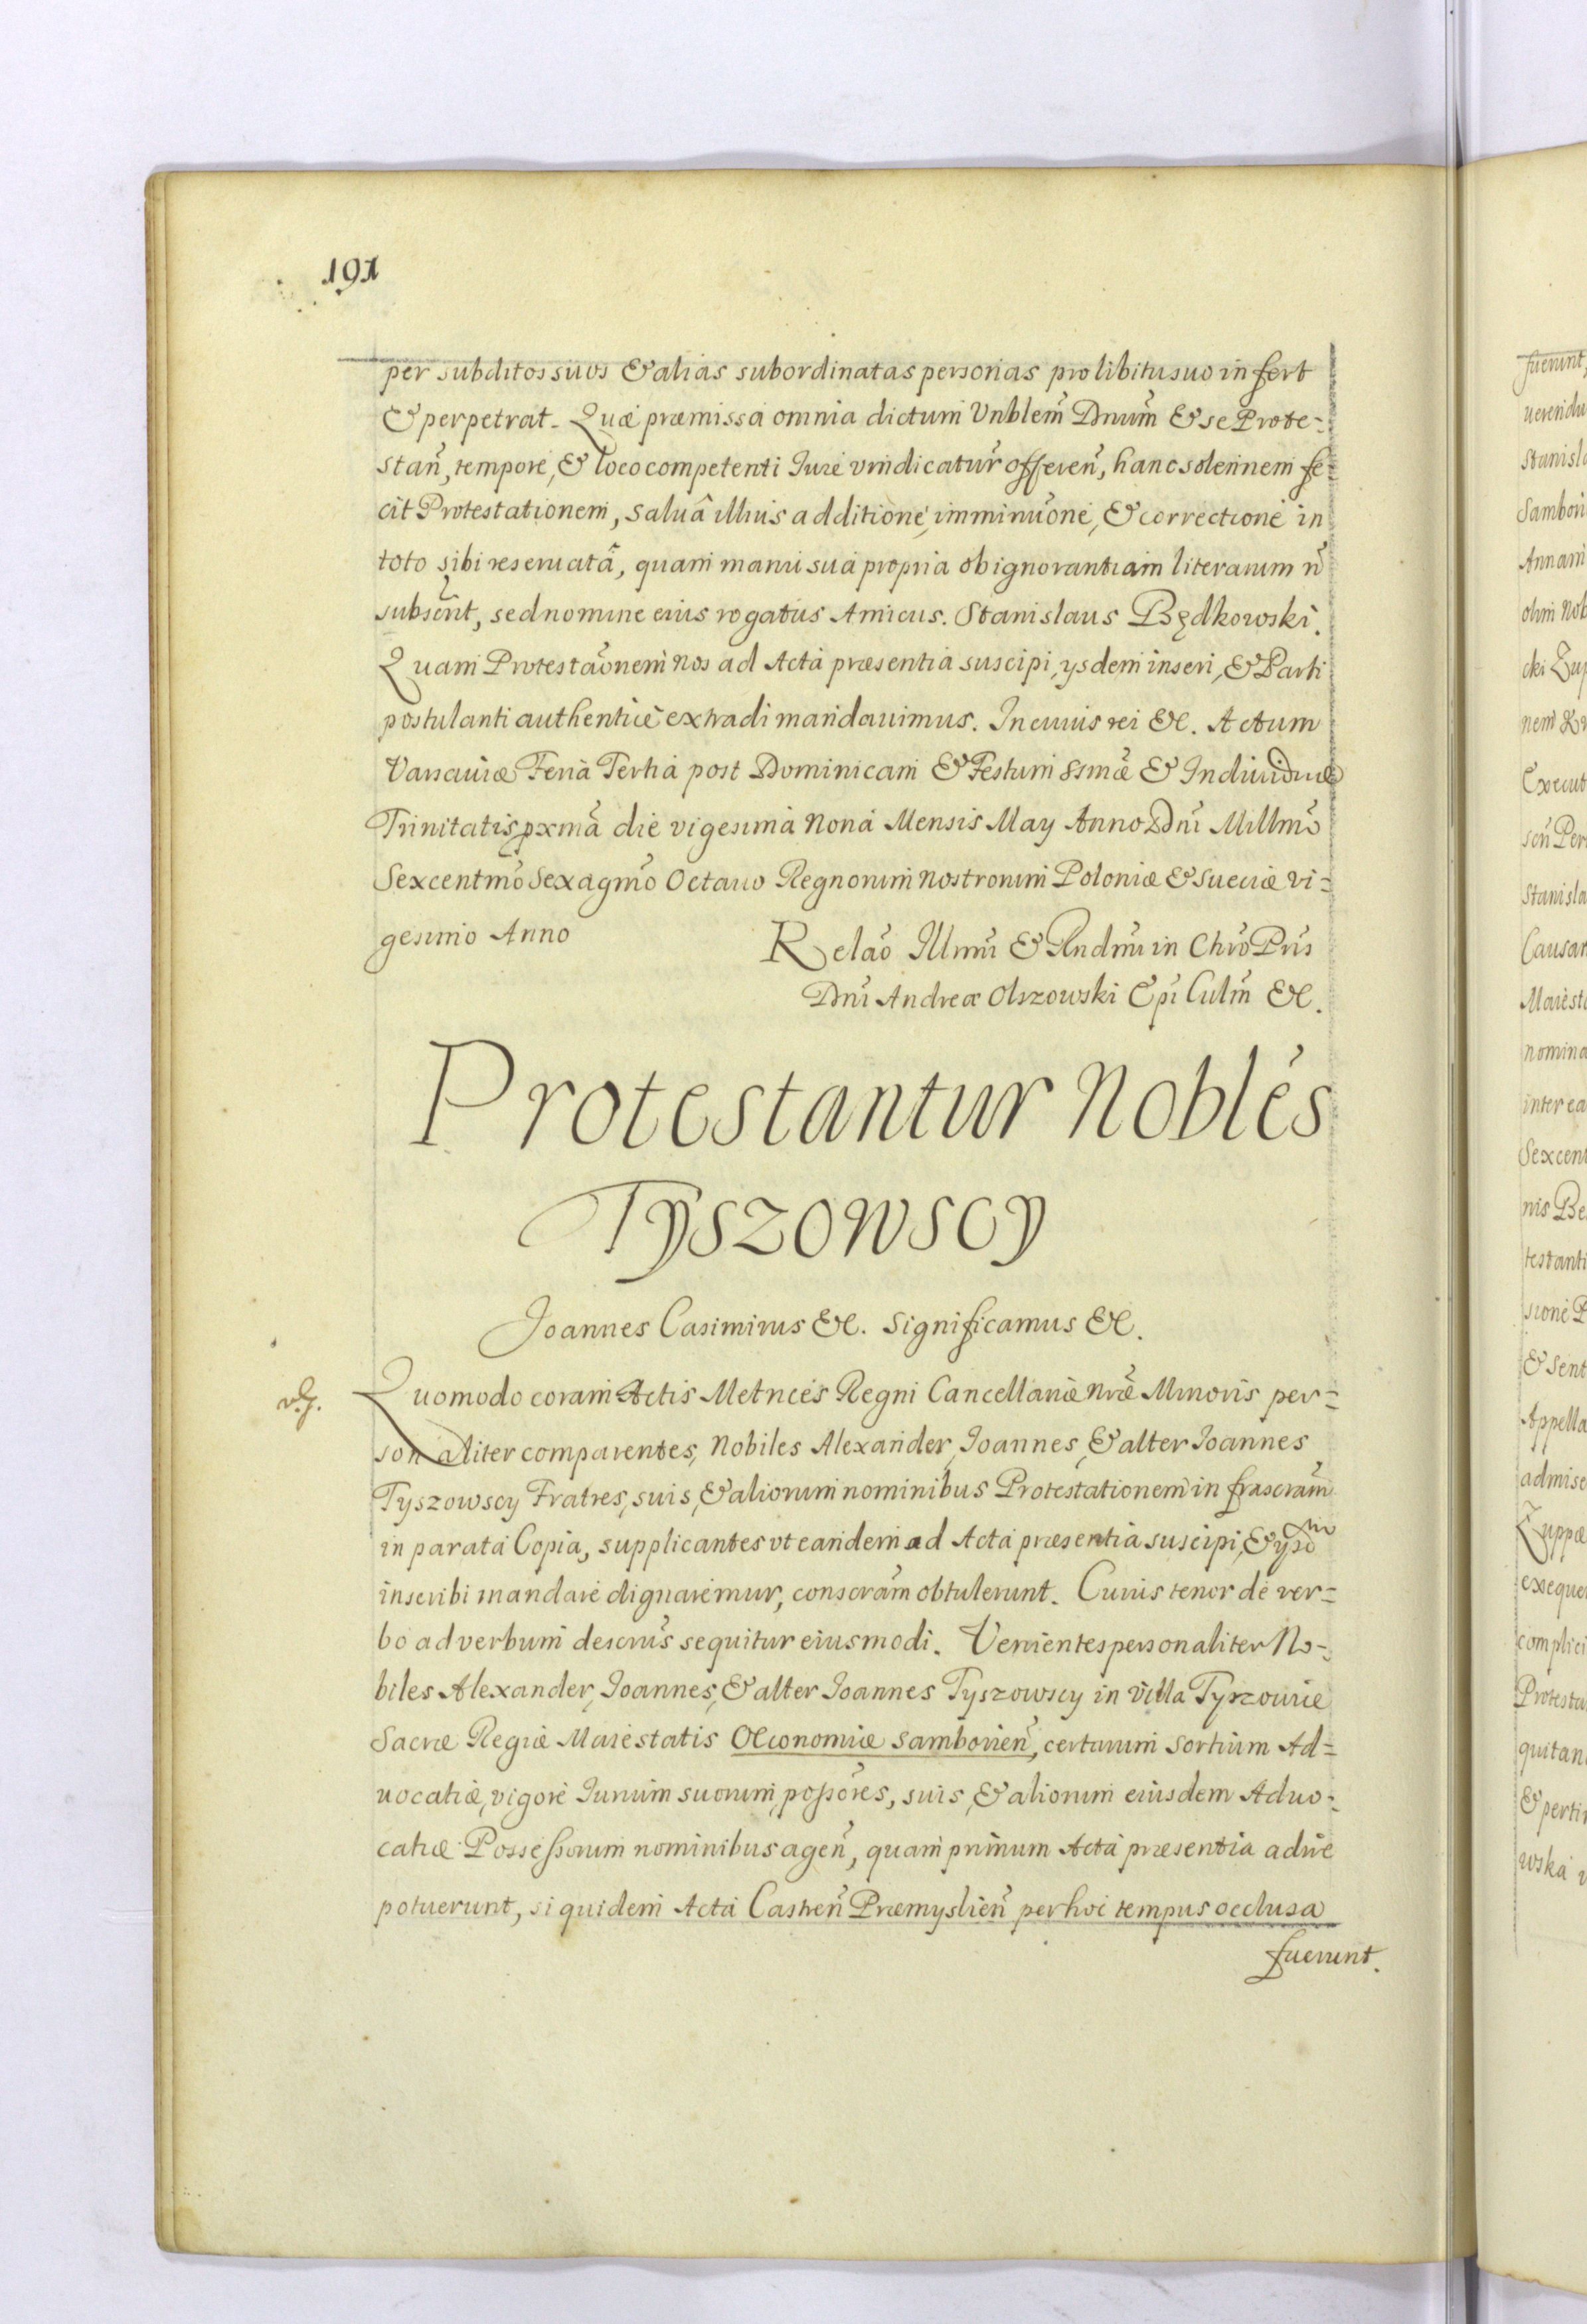 191
per subditos suos & alias subordinatas personas pro libitu suo infert
& perpetrat. Quæ præmissa omnia dictum Vnblem̃ Dnum̃ & se Prote=
stañ, tempore, & loco competenti Iure vindicatur̃ offereñ, hanc solennem fe=
cit Protestationem, saluâ illius additione, imminuõne, & correctione in
toto sibi reseruatâ, quam manu sua propria ob ignorantiam literarum ñ
subscr̃nt, sed nomine eius rogatus Amicus. Stanislaus Będkowski.
Quam Protestaõnem nos ad Acta præsentia suscipi, ysdem inseri, & Parti
postulanti authenticè extradi mandauimus. In cuius rei &c. Actum
Varsauiæ Feria Tertia post Dominicam & Festum SSmæ̃ & Indiuiduæ
Trinitatis pxmã die vigesima nona Mensis May Anno Dnĩ Millmõ
Sexcentmõ Sexagmõ Octauo Regnorum nostrorum Poloniæ & Sueciæ vi=
gesimo Anno
Relaõ Illmĩ & Rndmĩ in Chrõ Pris̃
Dnĩ Andreæ Olszowski Epĩ Culm̃ &c.
Protestantur Noblẽs
Tyszowscy
Joannes Casimirus &c. Significamus &c.
Quomodo coram Actis Metrices Regni Cancellariæ nræ̃ Minoris per=
sonaliter comparentes, Nobiles Alexander, Joannes, & alter Joannes
Tyszowscy Fratres, suis, & aliorum nominibus Protestationem infrascram̃
in parata Copia, supplicantes vt eandem ad Acta præsentia suscipi, &
inscribi mandare dignaremur, conscram̃ obtulerunt. Cuius tenor de ver=
bo ad verbum descrus̃ sequitur eiusmodi. Venientes personaliter No=
biles Alexander, Joannes, & alter Joannes Tyszowscy in Villa Tyszowice
Sacræ Regiæ Maiestatis Oeconomiæ Samborieñ, certarum Sortium Ad=
uocatiæ, vigore Iurium suorum, possores̃, suis, & aliorum eiusdem Aduo=
catiæ Possessorum nominibus ageñ, quam primum Acta præsentia adire
potuerunt, siquidem Acta Castreñ Præmyslieñ per hoc tempus occlusa
fuerunt.